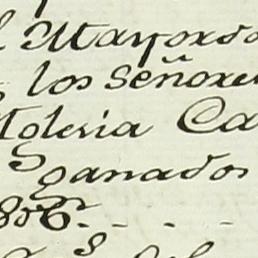 l Mayordo
los Señore
Iglesia Ca
ganados
1856. - - -